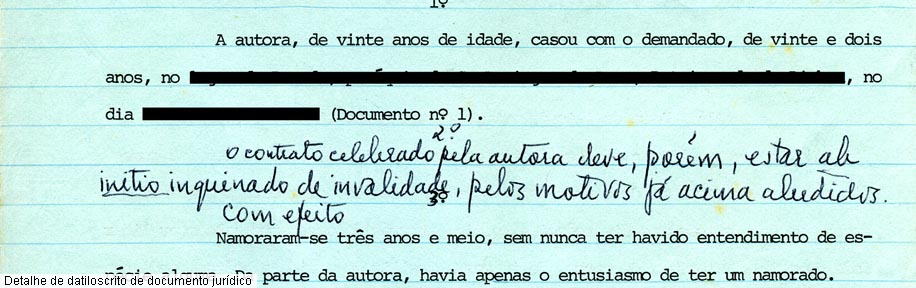 1º
A autora, de vinte anos de idade, casou com o demandado, de vinte e dois
anos, no , no
dia (Documento nº 1).
2º
O contrato celebrado pela autora deve, porém, estar ab
initio inquinado de invalidade, pelos motivos já acima aludidos.
3º
Com efeito
Namoraram-se três anos e meio, sem nunca ter havido entendimento de es-
pécie alguma. Da parte da autora, havia apenas o entusiasmo de ter um namorado.
Detalhe de datiloscrito de documento jurídico